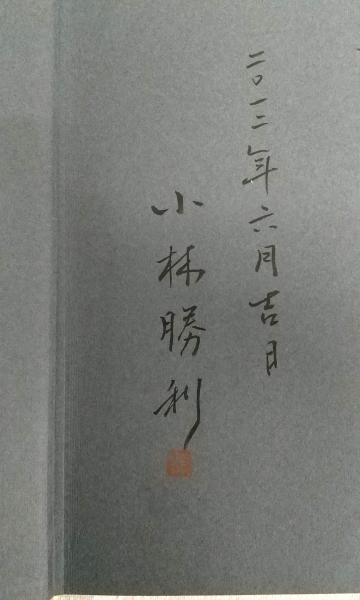 二〇一二年六月吉日
小林勝利